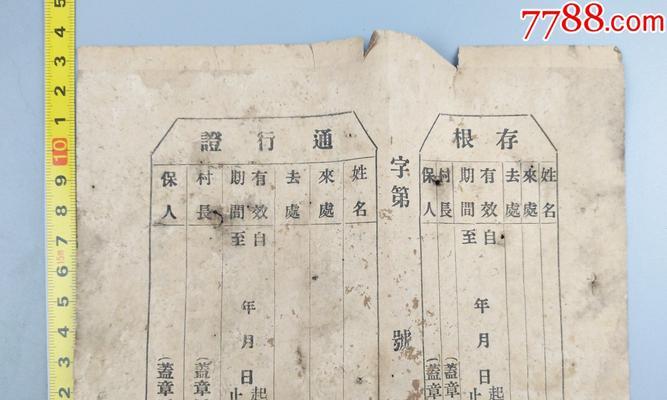 7788.com
中国收藏热线
存根
姓名
來處
去處
有效期間
自
至
年
月
日
起
止
村長
(蓋章
保人
(蓋章
字第
號
通行證
姓名
來處
去處
有效期間
自
至
年
月
日
起
止
村長
(蓋章
保人
(蓋章
10
9
8
7
6
5
4
3